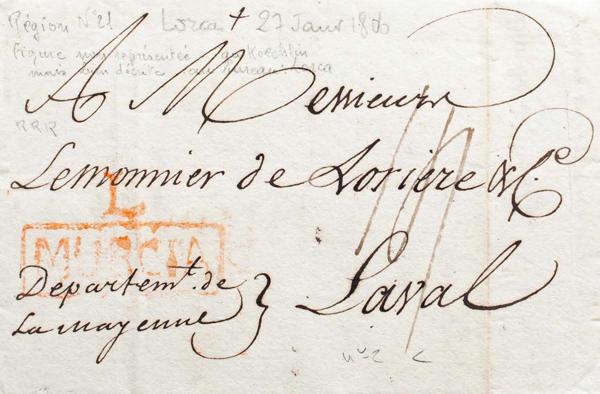 Région N° 21 Lorca + 27 Janv 1806
Figure non représentée
mais bien décrite Bureau Lorca
RRR
A Messieurs
Lemonnier de Lorière & C.e
L
MURCIA
Departem.t de
La mayenne } Laval